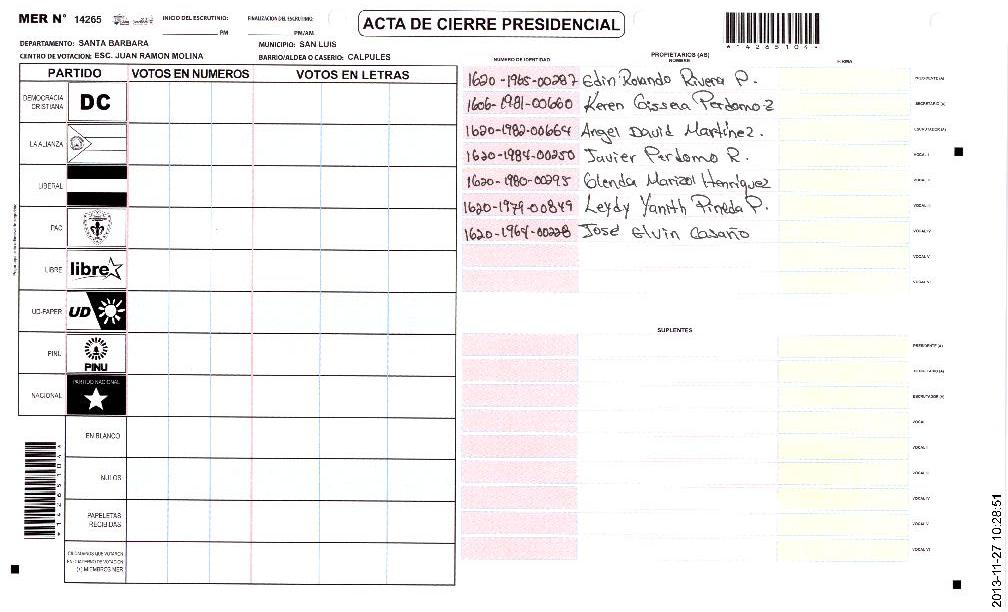 MER N° 14265
INICIO DEL ESCRUTINIO: PM
FINALIZACION DEL ESCRUTINIO: PM/AM
ACTA DE CIERRE PRESIDENCIAL
DEPARTAMENTO: SANTA BARBARA
MUNICIPIO: SAN LUIS
CENTRO DE VOTACION: ESC. JUAN RAMON MOLINA
BARRIO/ALDEA O CASERIO: CALPULES
PARTIDO VOTOS EN NUMEROS VOTOS EN LETRAS
DEMOCRACIA CRISTIANA DC
LA ALIANZA
LIBERAL
PAC
LIBRE libre
UD-FAPER UD
PINU PINU
NACIONAL PARTIDO NACIONAL
EN BLANCO
NULOS
PAPELETAS RECIBIDAS
CIUDADANOS QUE VOTARON
EN CUADERNO DE VOTACION
(+) MIEMBROS MER
NUMERO DE IDENTIDAD PROPIETARIOS (AS) NOMBRE FIRMA
1620-1965-00287 Edin Rolando Rivera P. PRESIDENTE (A)
1606-1981-00660 Keren Perdomo SECRETARIO (A)
1620-1982-00664 Angel David Martínez. ESCRUTADOR (A)
1620-1984-00250 Javier Perdomo R. VOCAL I
1620-1980-00295 Glenda Marizol Henríquez VOCAL II
1620-1979-00849 Leydy Yanith Pineda P. VOCAL III
1620-1964-00228 José Elvin VOCAL IV
VOCAL V
VOCAL VI
SUPLENTES
PRESIDENTE (A)
SECRETARIO (A)
ESCRUTADOR (A)
VOCAL I
VOCAL II
VOCAL III
VOCAL IV
VOCAL V
VOCAL VI
2013-11-27 10:28:51